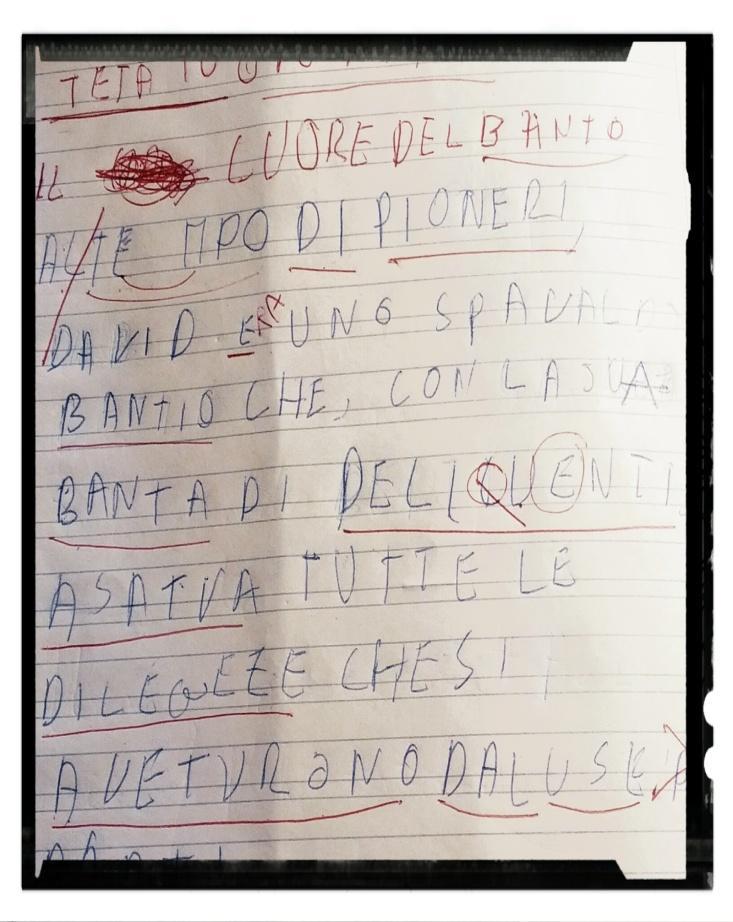 TETA
IL CUORE DEL BANTO
AL TE MPO DI PIONERI
DAVID ERA UNO SPAVAL
BANTIO CHE, CON LA SUA
BANTA DI DELIQUENTI
ASATVA TUTTE LE
DILEQEZE CHE SI
AVETVRANO DAL USE